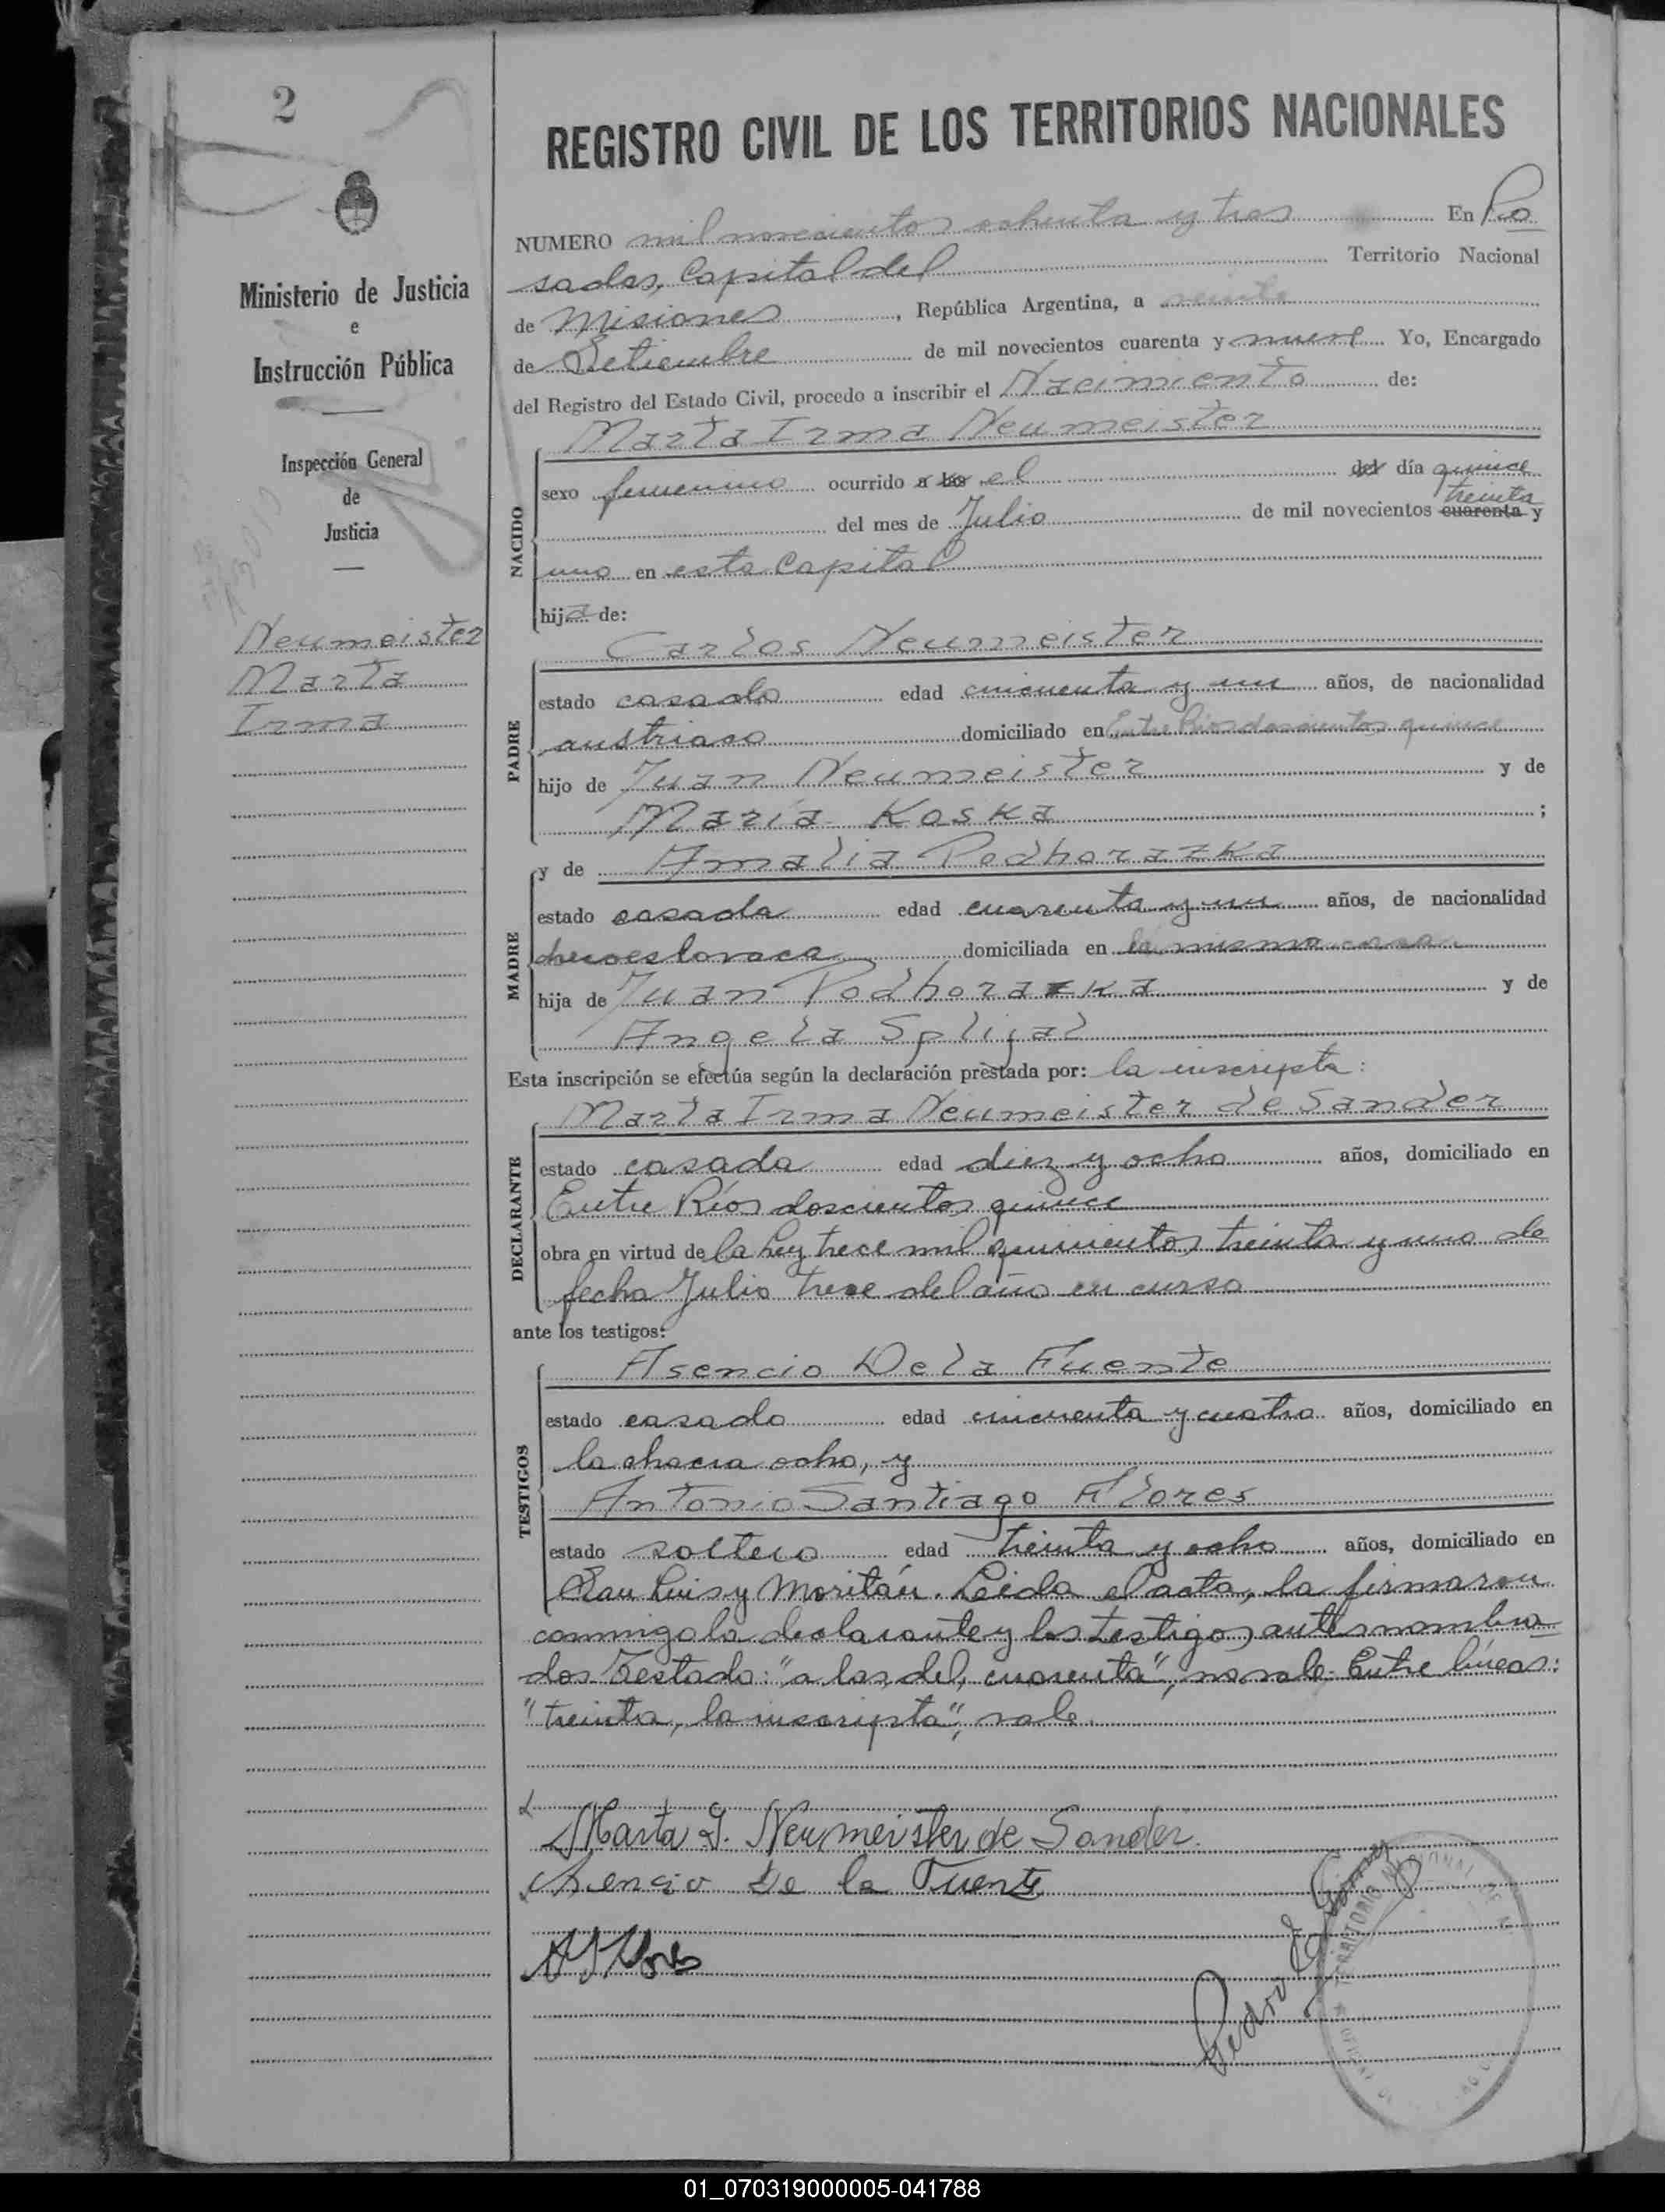 2
Ministerio de Justicia
e
Instrucción Pública
Inspección General
de
Justicia
Neumeister
Marta
Irma
REGISTRO CIVIL DE LOS TERRITORIOS NACIONALES
NUMERO mil novecientos ochenta y tres En Po
sadas, Capital del Territorio Nacional
de Misiones, República Argentina, a veinte
de Setiembre de mil novecientos cuarenta y nueve Yo, Encargado
del Registro del Estado Civil, procedo a inscribir el Nacimiento de:
Marta Irma Neumeister
NACIDO
sexo femenino ocurrido a las el del día quince
treinta
del mes de Julio de mil novecientos cuarenta y
uno en esta Capital
hija de:
Carlos Neumeister
PADRE
estado casado edad cincuenta y un años, de nacionalidad
austriaco domiciliado en Entre Ríos doscientos quince
hijo de Juan Neumeister y de
María Koska;
y de Amalia Podhorazka
MADRE
estado casada edad cuarenta y un años, de nacionalidad
checoeslovaca domiciliada en la misma casa
hija de Juan Podhorazka y de
Angela Spligal
Esta inscripción se efectúa según la declaración prestada por: la inscripta:
Marta Irma Neumeister de Sander
DECLARANTE
estado casada edad diez y ocho años, domiciliado en
Entre Ríos doscientos quince
obra en virtud de la Ley trece mil quinientos treinta y uno de
fecha Julio trece del año en curso
ante los testigos:
Asencio De la Fuente
TESTIGOS
estado casado edad cincuenta y cuatro años, domiciliado en
la chacra ocho, y
Antonio Santiago Flores
estado soltero edad treinta y ocho años, domiciliado en
San Luis y Moritán. Leida el acta, la firmaron
conmigo la declarante y los testigos antesnombra
dos Testado: "a las, del, cuarenta", no vale. Entre líneas:
"treinta, la inscripta", vale.
Marta I. Neumeister de Sander.
Asencio De la Fuente
A S Flores
Pedro E Gimenez
TERRITORIO NACIONAL DE M
01_070319000005-041788